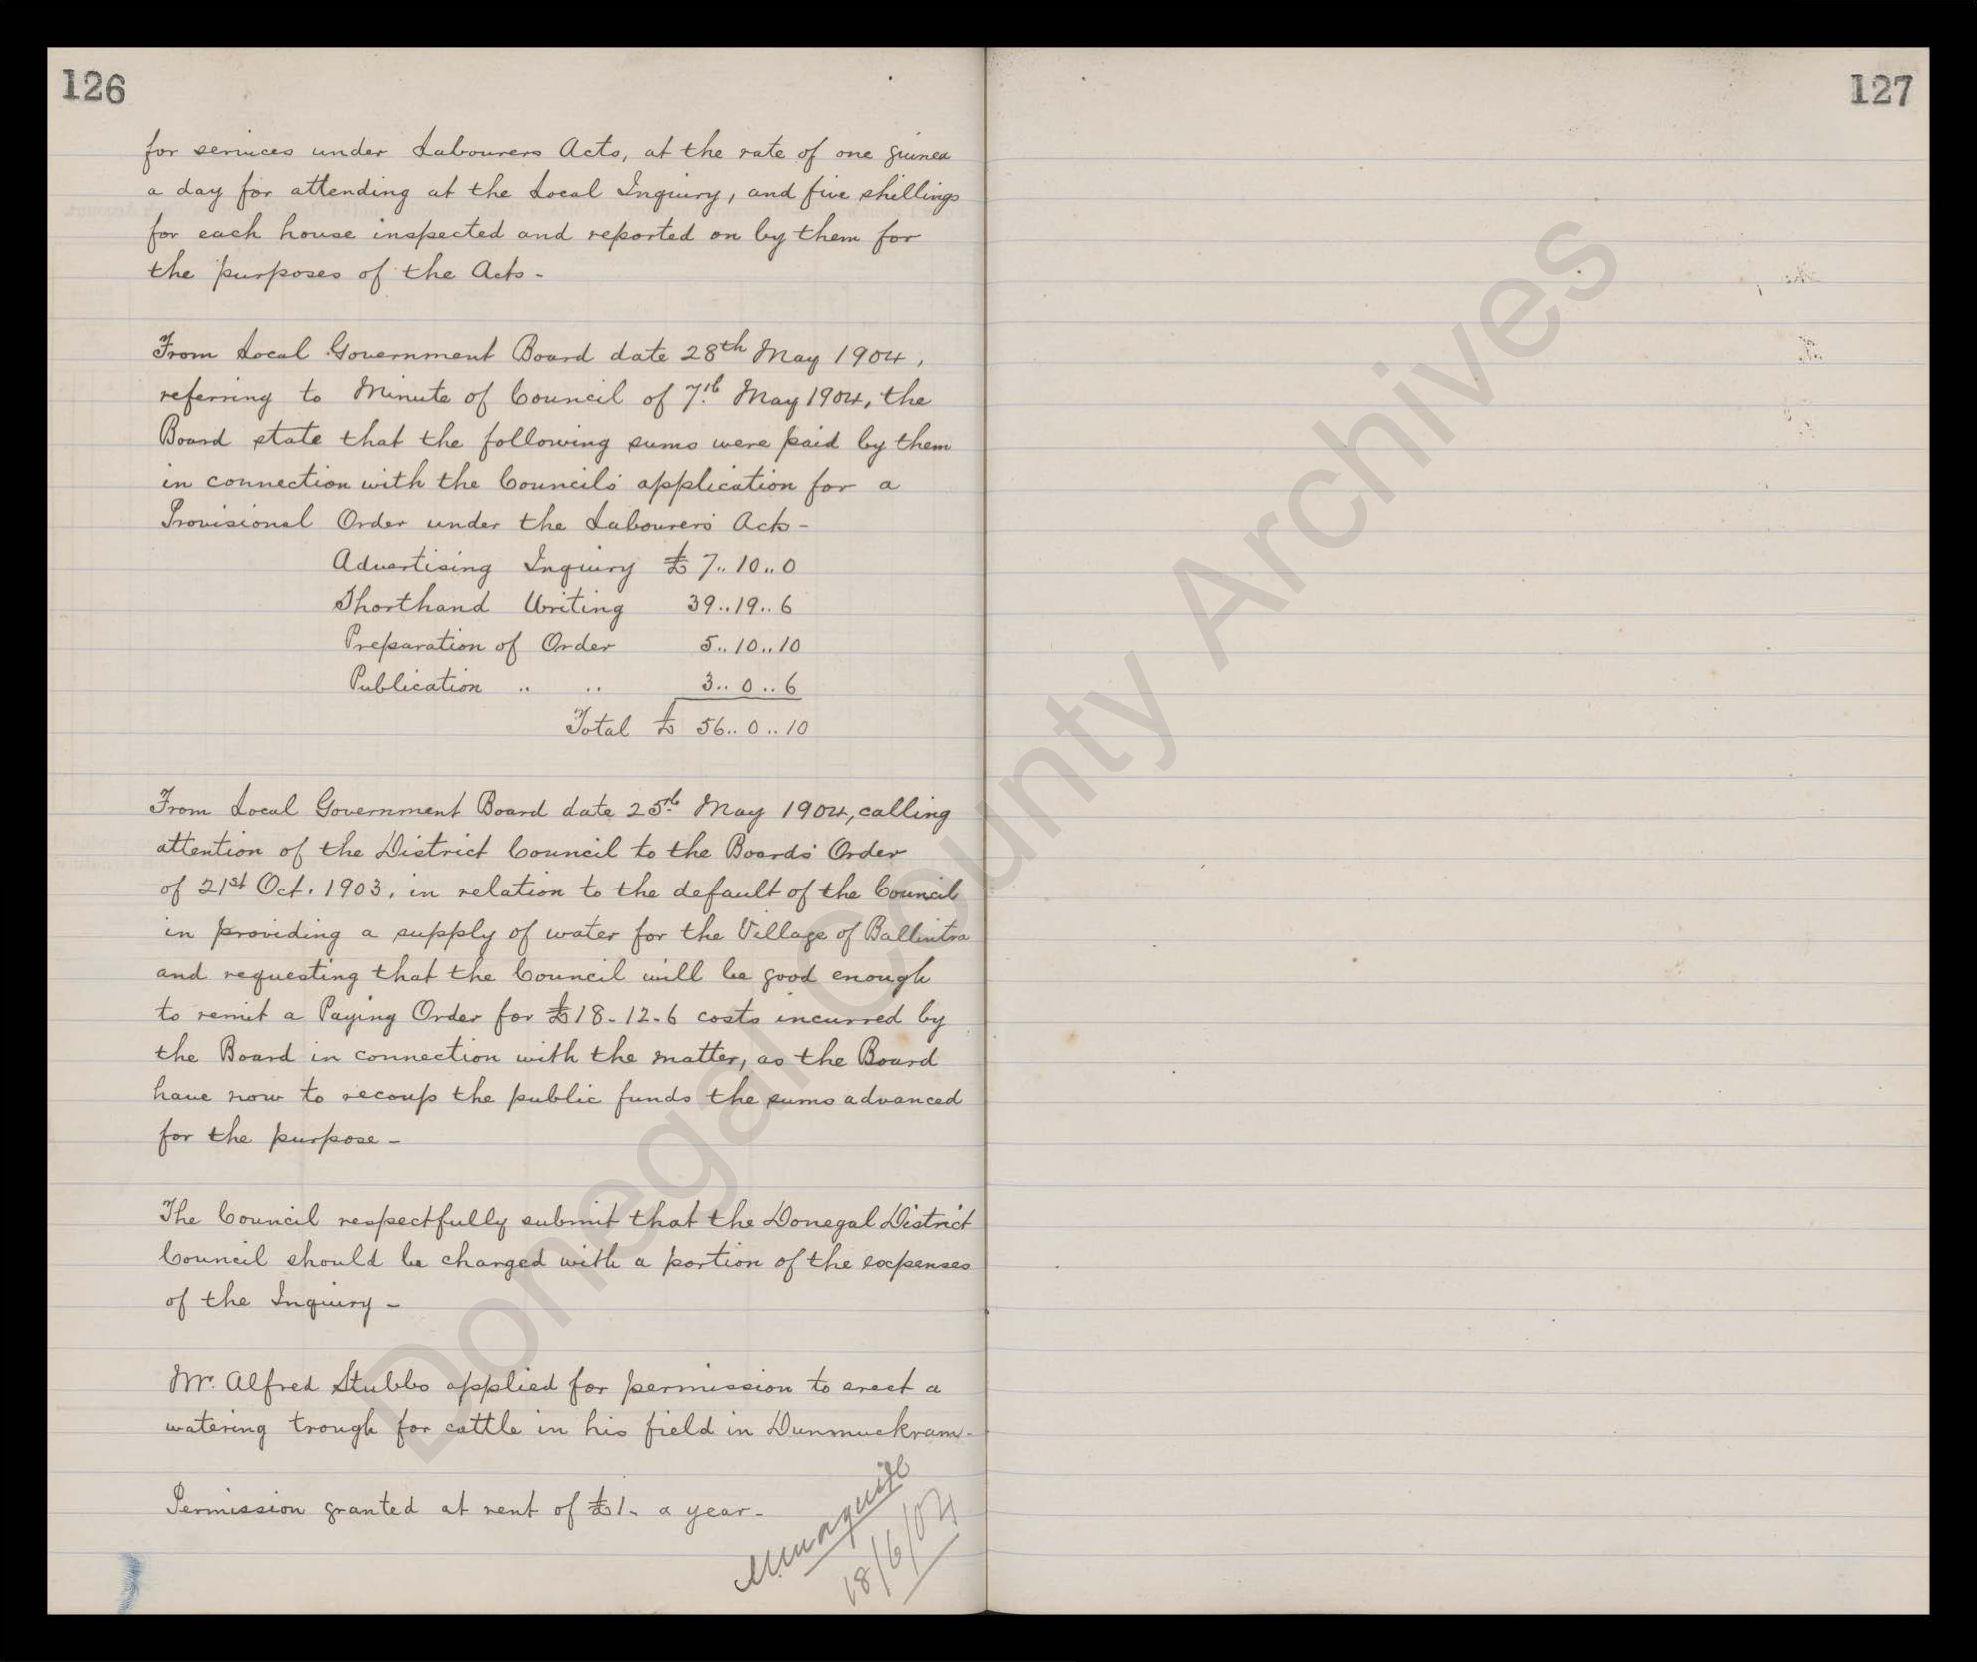 126
for services under Labourers Acts, at the rate of one guinea
a day for attending at the Local Inquiry, and five shillings
for each house inspected and reported on by them for
the purposes of the Acts -
From Local Government Board date 28th May 1904,
referring to Minute of Council of 7th May 1904, the
Board state that the following sums were paid by them
in connection with the Council's application for a
Provisional Order under the Labourers' Acts -
Advertising Inquiry £ 7..10..0
Shorthand Writing 39..19..6
Preparation of Order 5..10..10
Publication .. .. 3..0..6
Total £ 56..0..10
From Local Government Board date 25th May 1904, calling
attention of the District Council to the Board's Order
of 21st Oct. 1903, in relation to the default of the Council
in providing a supply of water for the Village of Ballintra
and requesting that the Council will be good enough
to remit a Paying Order for £18-12-6 costs incurred by
the Board in connection with the matter, as the Board
have now to recoup the public funds the sums advanced
for the purpose -
The Council respectfully submit that the Donegal District
Council should be charged with a portion of the expenses
of the Inquiry -
Mr. Alfred Stubbs applied for permission to erect a
watering trough for cattle in his field in Dunmuckrum -
Permission granted at rent of £1- a year -
18/6/04
127
Donegal County Archives